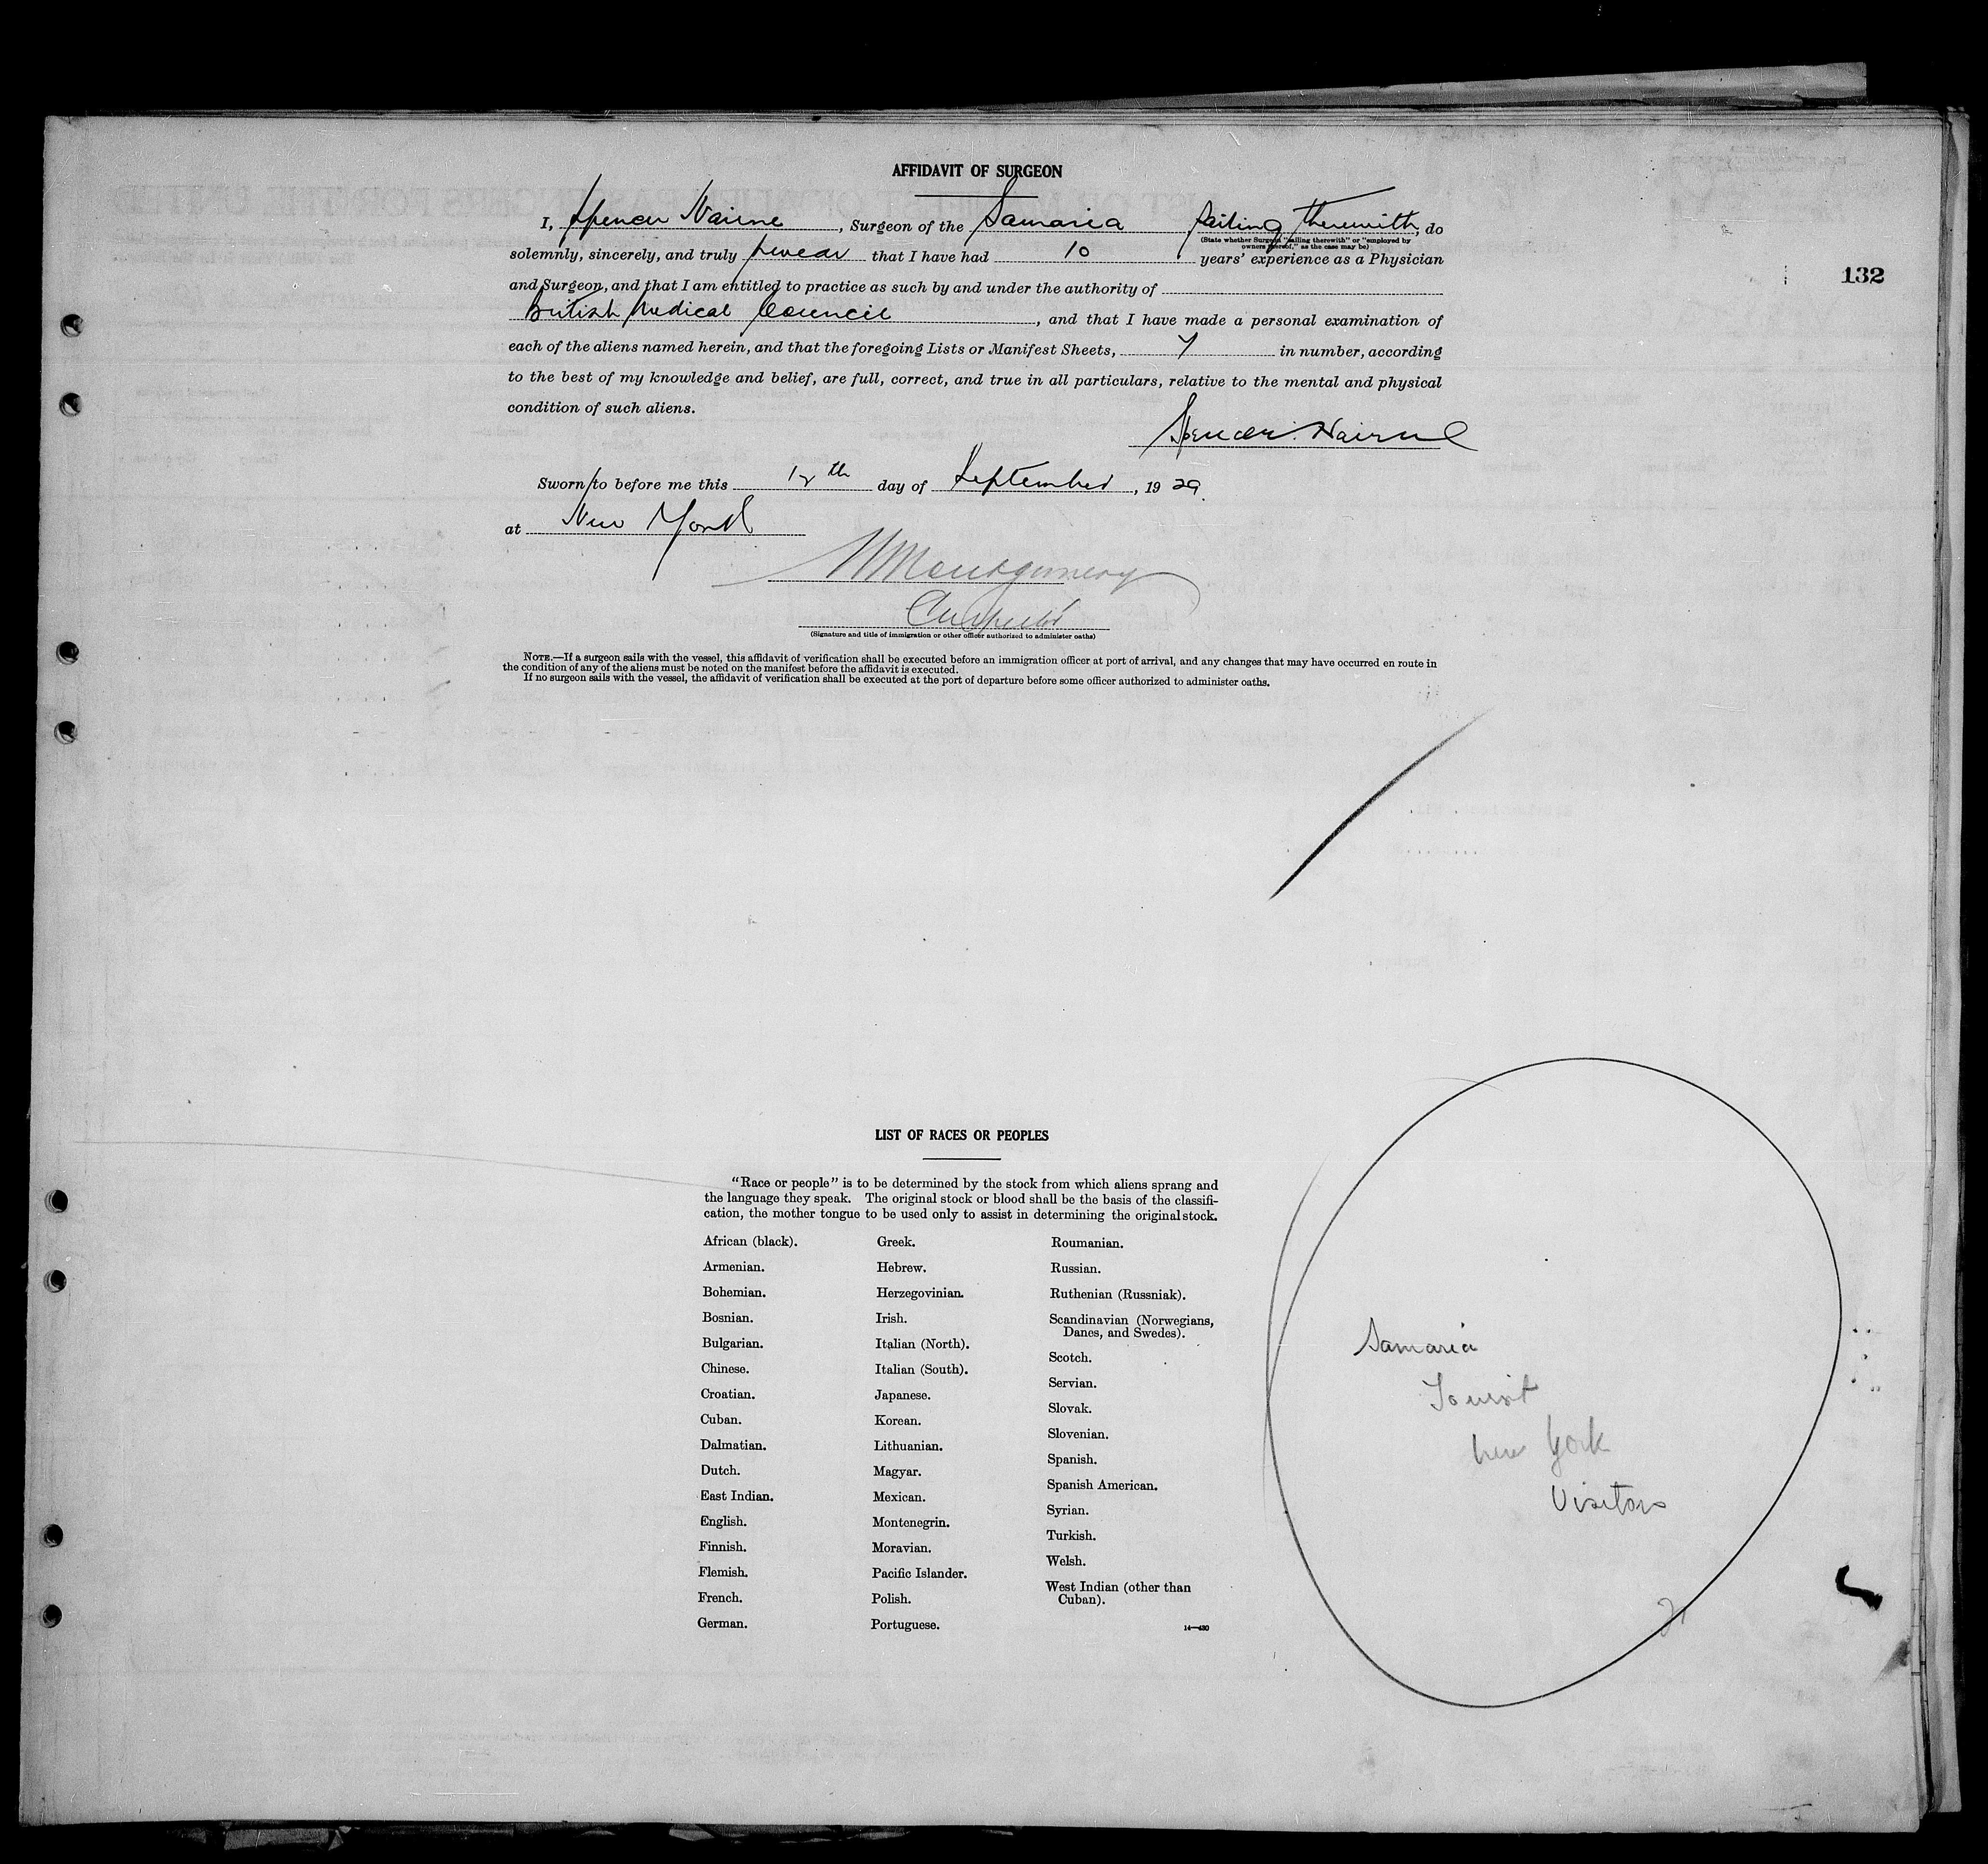 AFFIDAVIT OF SURGEON
I, Spencer Nairne, Surgeon of the Samaria sailing therewith, do
(State whether Surgeon "sailing therewith" or "employed by
owners thereof," as the case may be)
solemnly, sincerely, and truly swear that I have had 10 years' experience as a Physician
132
and Surgeon, and that I am entitled to practice as such by and under the authority of
British Medical Council, and that I have made a personal examination of
each of the aliens named herein, and that the foregoing Lists or Manifest Sheets, 7 in number, according
to the best of my knowledge and belief, are full, correct, and true in all particulars, relative to the mental and physical
condition of such aliens.
Spencer Nairne
Sworn to before me this 12th day of September, 1929
at New York
Montgomery
Inspector
(Signature and title of immigration or other officer authorized to administer oaths)
NOTE.—If a surgeon sails with the vessel, this affidavit of verification shall be executed before an immigration officer at port of arrival, and any changes that may have occurred en route in
the condition of any of the aliens must be noted on the manifest before the affidavit is executed.
If no surgeon sails with the vessel, the affidavit of verification shall be executed at the port of departure before some officer authorized to administer oaths.
LIST OF RACES OR PEOPLES
"Race or people" is to be determined by the stock from which aliens sprang and
the language they speak. The original stock or blood shall be the basis of the classifi-
cation, the mother tongue to be used only to assist in determining the original stock.
African (black).
Armenian.
Bohemian.
Bosnian.
Bulgarian.
Chinese.
Croatian.
Cuban.
Dalmatian.
Dutch.
East Indian.
English.
Finnish.
Flemish.
French.
German.
Greek.
Hebrew.
Herzegovinian.
Irish.
Italian (North).
Italian (South).
Japanese.
Korean.
Lithuanian.
Magyar.
Mexican.
Montenegrin.
Moravian.
Pacific Islander.
Polish.
Portuguese.
Roumanian.
Russian.
Ruthenian (Russniak).
Scandinavian (Norwegians,
Danes, and Swedes).
Scotch.
Servian.
Slovak.
Slovenian.
Spanish.
Spanish American.
Syrian.
Turkish.
Welsh.
West Indian (other than
Cuban).
14—430
Samaria
Tourist
New York
Visitors